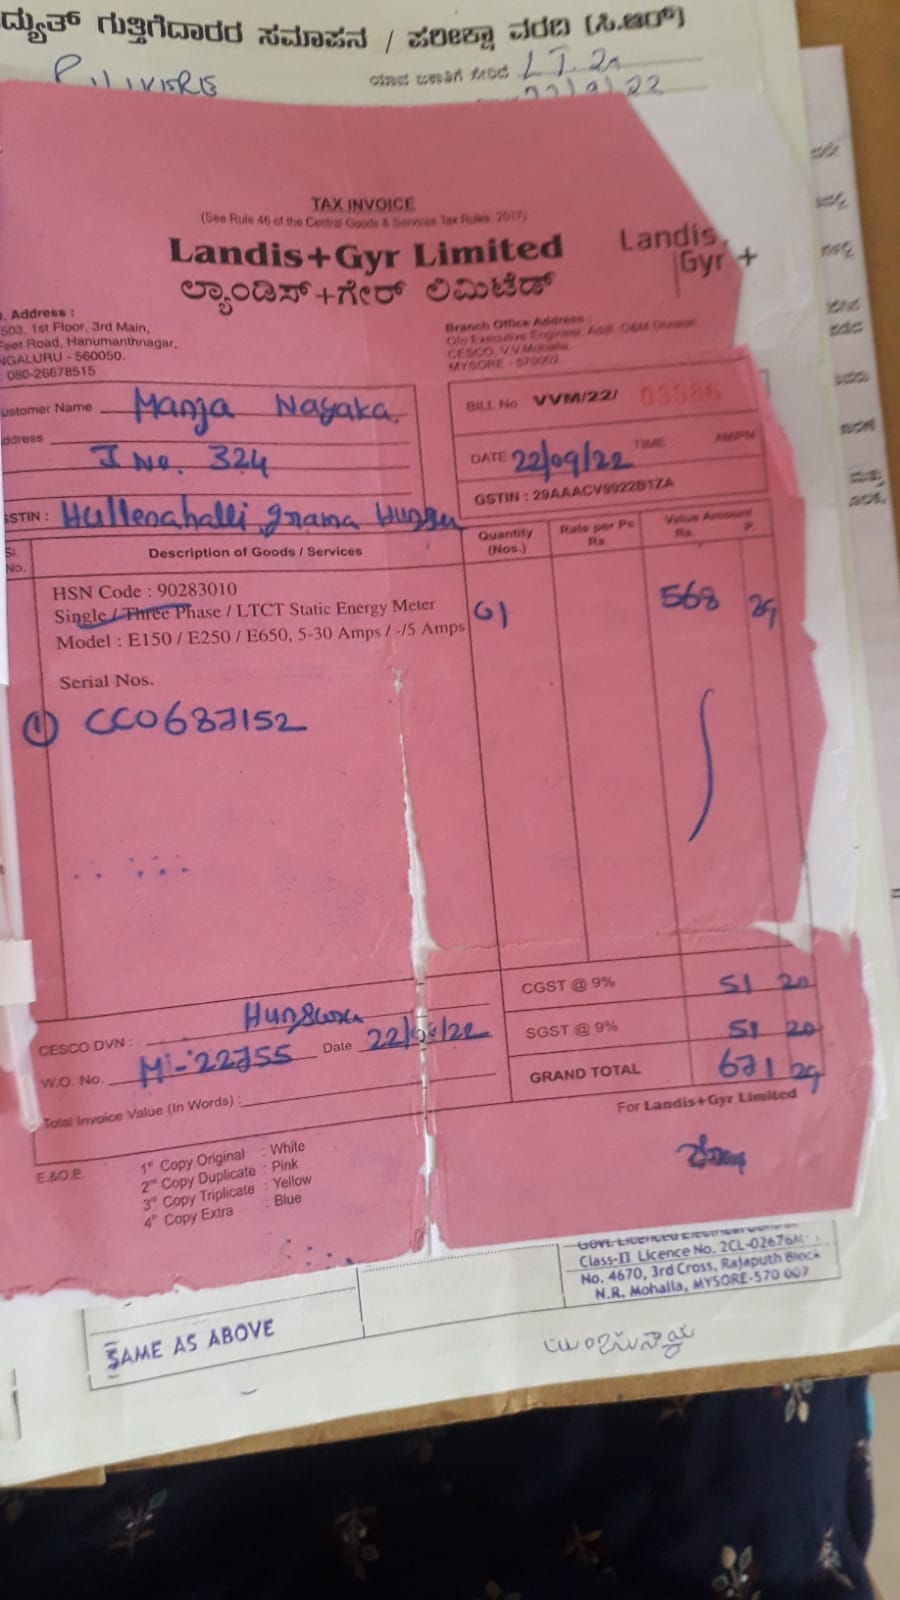 ದ್ಯುತ್ ಗುತ್ತಿಗೆದಾರರ ಸಮಾಪನ / ಪರೀಕ್ಷಾ ವರದಿ (ಸಿ.ಆರ್)
LT.2a
22/9/22
TAX INVOICE
(See Rule 46 of the Central Goods & Services Tax Rules, 2017)
Landis+Gyr Limited
Landis Gyr +
ಲ್ಯಾಂಡಿಸ್+ಗೇರ್ ಲಿಮಿಟೆಡ್
. Address :
503, 1st Floor, 3rd Main,
Feet Road, Hanumanthnagar,
NGALURU - 560050.
080-26678515
Branch Office Address :
O/o Executive Engineer, Addl. O&M Division,
CESCO, V.V.Mohalla,
MYSORE - 570002.
ustomer Name Manja Nayaka.
ddress
J No. 324
STIN : Hullenahalli grama
BILL No VVM/22/ 03986
DATE 22/09/22 TIME AM/PM
GSTIN : 29AAACV9922B1ZA
Sl. No. Description of Goods / Services Quantity (Nos.) Rate per Pc Rs. Value Amount Rs. P.
HSN Code : 90283010
Single / Three Phase / LTCT Static Energy Meter 01 568 29
Model : E150 / E250 / E650, 5-30 Amps / -/5 Amps
Serial Nos.
① CC0687152
CGST @ 9% 51 20
SGST @ 9% 51 20
GRAND TOTAL 671 29
CESCO DVN :
W.O. No. M-22755 Date 22/09/22
Total Invoice Value (In Words) :
For Landis+Gyr Limited
E.&O.E.
1st Copy Original : White
2nd Copy Duplicate : Pink
3rd Copy Triplicate : Yellow
4th Copy Extra : Blue
Class-II Licence No. 2CL-02676M
No. 4670, 3rd Cross, Rajaputh Block
N.R. Mohalla, MYSORE-570 007
SAME AS ABOVE